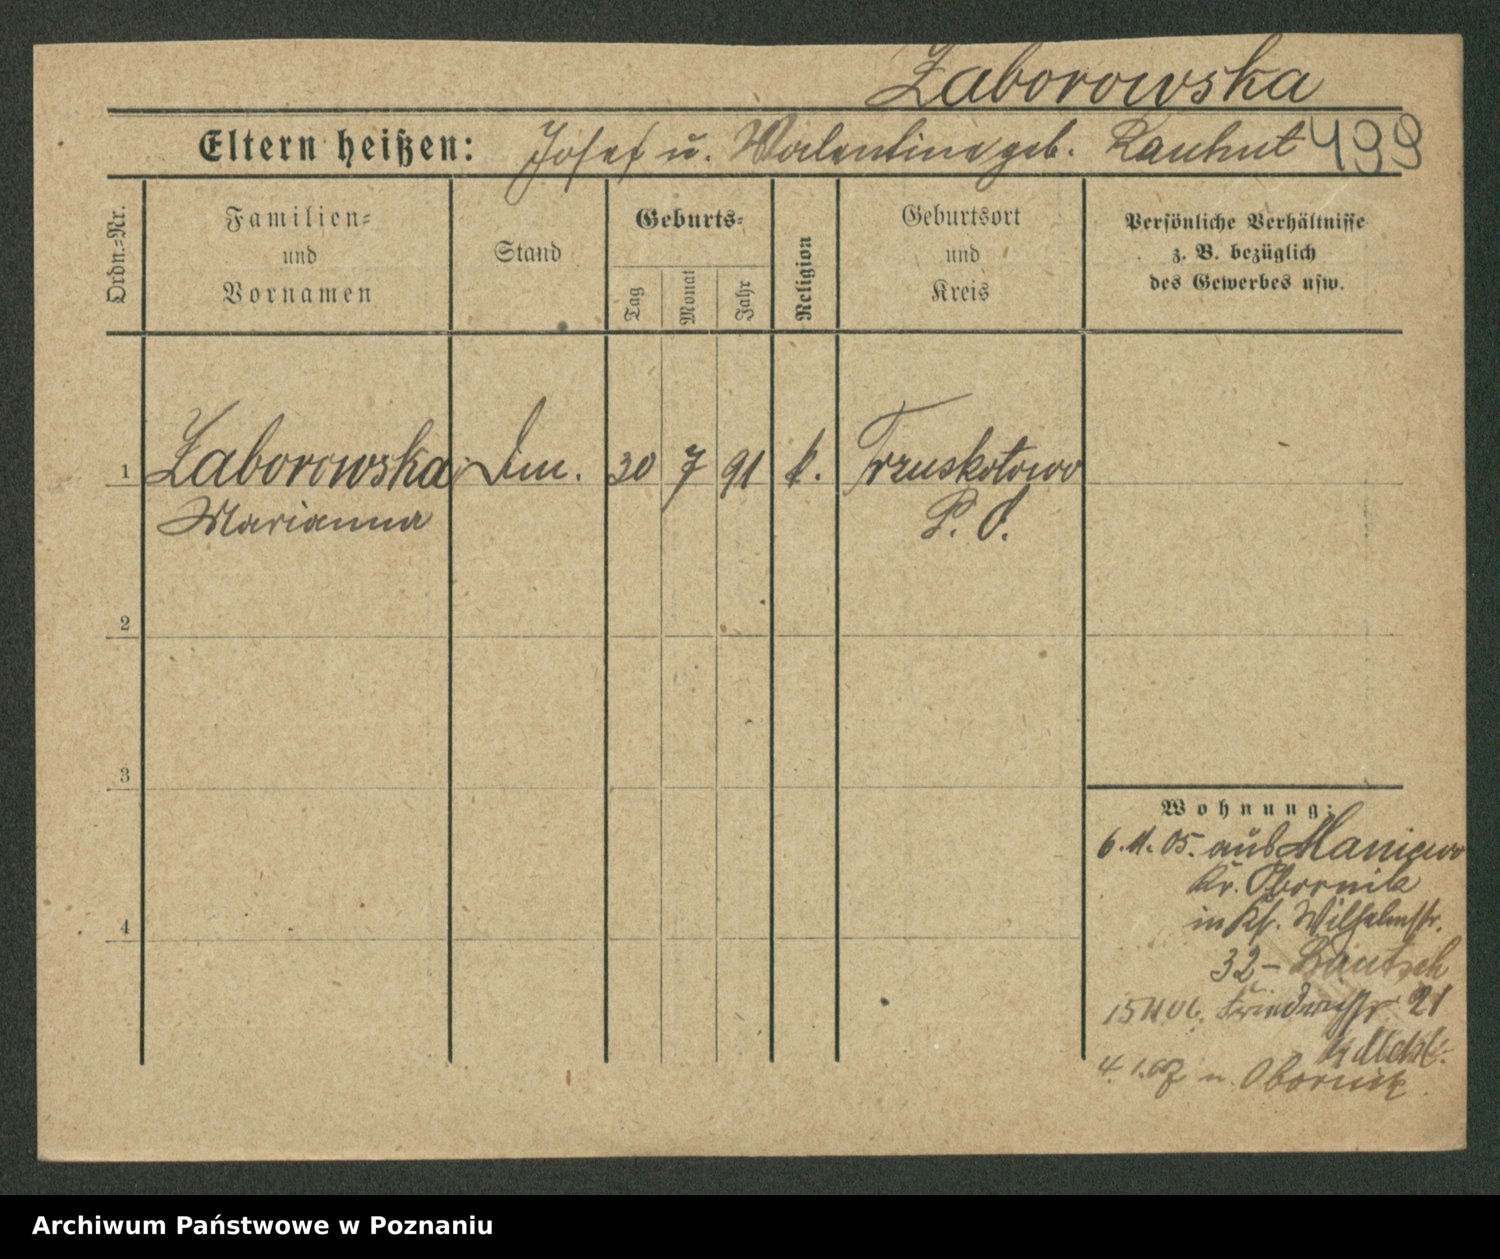 Zaborowska
Eltern heißen: Josef u. Valentine geb. Rauhut 499
Ordn.-Nr.
Familien-
und
Vornamen
Stand
Geburts-
Tag
Monat
Jahr
Religion
Geburtsort
und
Kreis
Persönliche Verhältnisse
z. B. bezüglich
des Gewerbes usw.
1 Zaborowska 30 7 91 k. Trzuskotowo
Marianna
P. O.
2
3
4
Wohnung:
6.11.05. aus Maniewo
Kr. Obornik
in Kf. Wilhelmstr.
32 –
15 06. Friedrichstr 21
4. 1. 07 n. Obornik
Archiwum Państwowe w Poznaniu